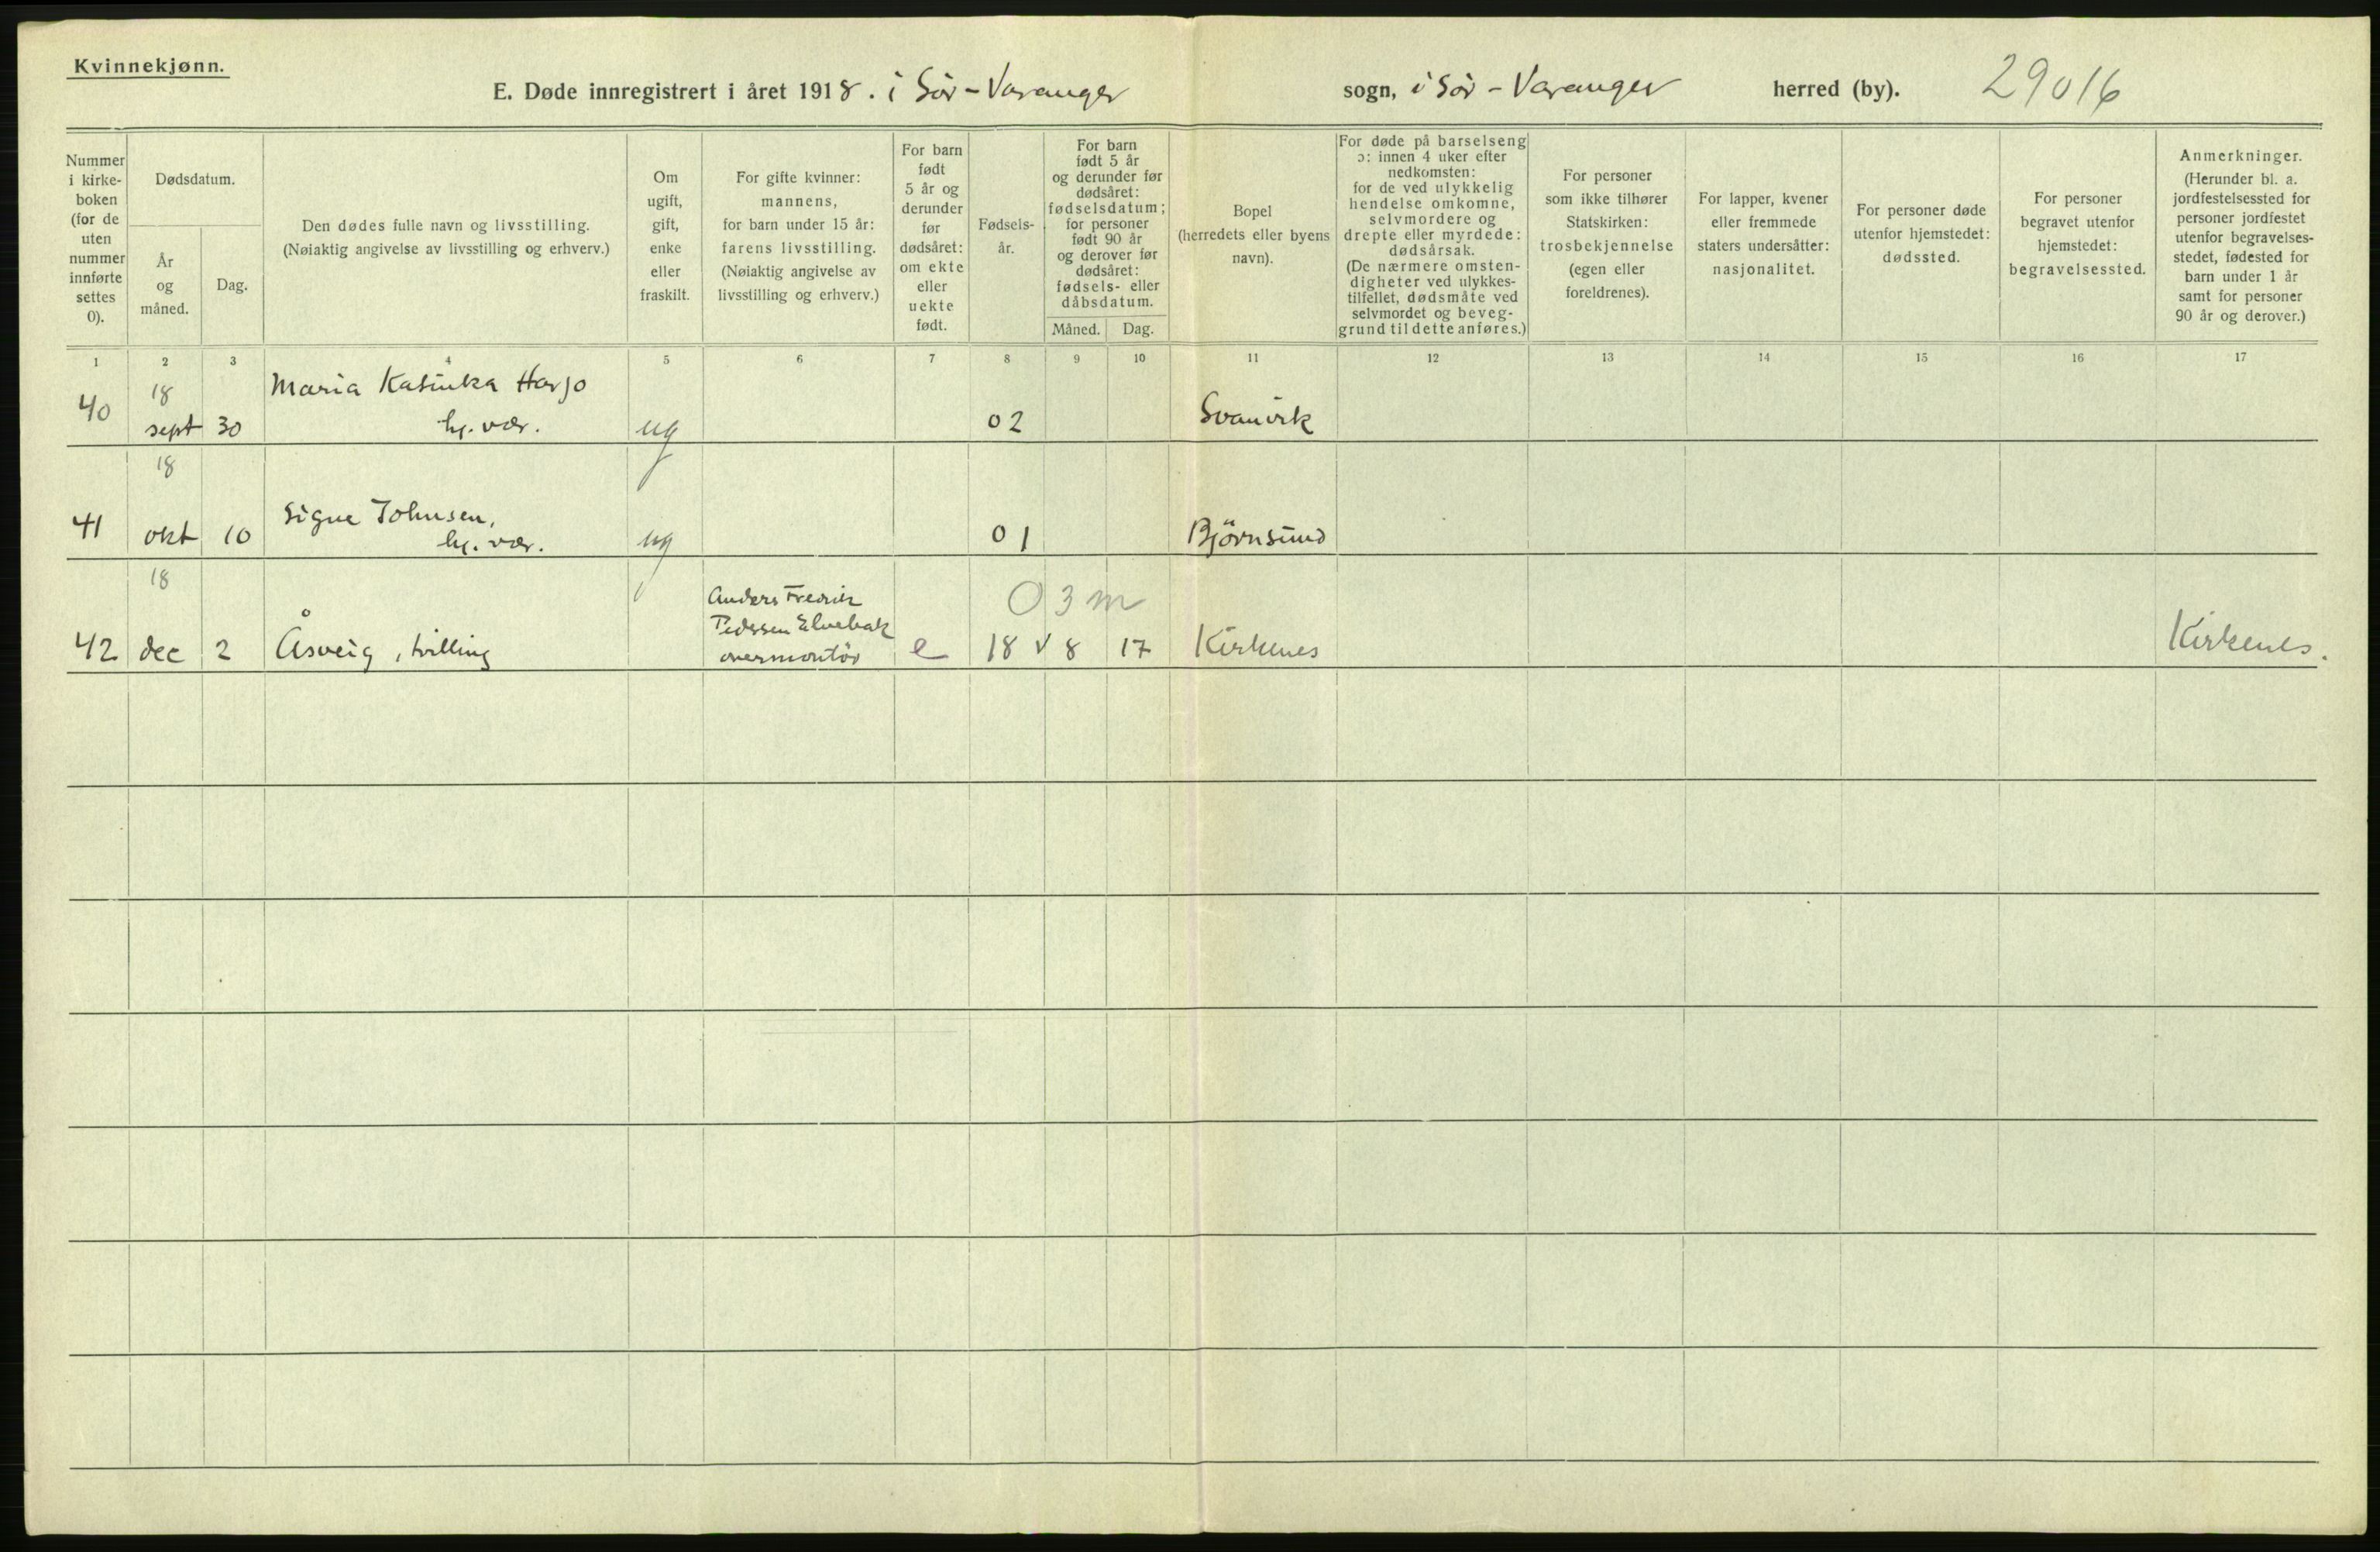 Kvinnekjønn.
E. Døde innregistrert i året 1918. i Sör-Varanger sogn, i Sör-Varanger herred (by). 29016
Nummer i kirke-boken (for de uten nummer innførte settes 0).
Dødsdatum.
År og måned.
Dag.
Den dødes fulle navn og livsstilling.
(Nøiaktig angivelse av livsstilling og erhverv.)
Om ugift, gift, enke eller fraskilt.
For gifte kvinner: mannens, for barn under 15 år: farens livsstilling. (Nøiaktig angivelse av livsstilling og erhverv.)
For barn født 5 år og derunder før dødsåret: om ekte eller uekte født.
Fødsels-år.
For barn født 5 år og derunder før dødsåret: fødselsdatum; for personer født 90 år og derover før dødsåret: fødsels- eller dåbsdatum.
Måned. Dag.
Bopel (herredets eller byens navn).
For døde på barselseng ɔ: innen 4 uker efter nedkomsten: for de ved ulykkelig hendelse omkomne, selvmordere og drepte eller myrdede: dødsårsak. (De nærmere omsten-digheter ved ulykkes-tilfellet, dødsmåte ved selvmordet og beveg-grund til dette anføres.)
For personer som ikke tilhører Statskirken: trosbekjennelse (egen eller foreldrenes).
For lapper, kvener eller fremmede staters undersåtter: nasjonalitet.
For personer døde utenfor hjemstedet: dødssted.
For personer begravet utenfor hjemstedet: begravelsessted.
Anmerkninger. (Herunder bl. a. jordfestelsessted for personer jordfestet utenfor begravelses-stedet, fødested for barn under 1 år samt for personer 90 år og derover.)
1 2 3 4 5 6 7 8 9 10 11 12 13 14 15 16 17
18 Maria Katinka Harjo
40 sept 30 hj. vær. ug 02 Svanvik
18
Signe Johnsen,
41 okt 10 hj. vær. ug 01 Björnsund
18 Anders Fredrik 0 3 m
Pedersen Elvebak
42 dec 2 Åsveig, tvilling overmontör e 18 8 17 Kirkenes Kirkenes.